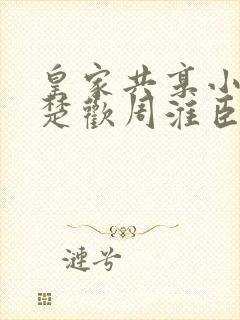 皇家共享小
楚歡周淮臣
漣兮